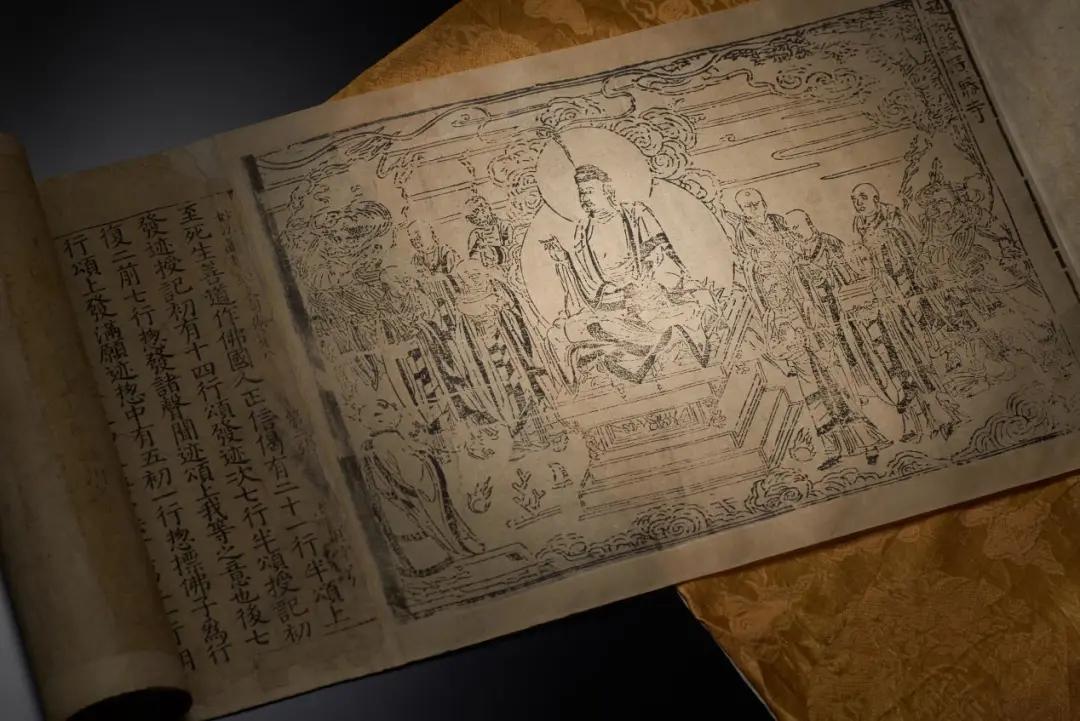 至死生善道作佛國人正信傷有二十一行半頌上
發迹授記初有十四行頌發迹次七行半頌授記初
復二前七行揔發諸聲聞迹頌上我等之意也後七
行頌上發滿願迹揔中有五初一行揔摽佛子為行